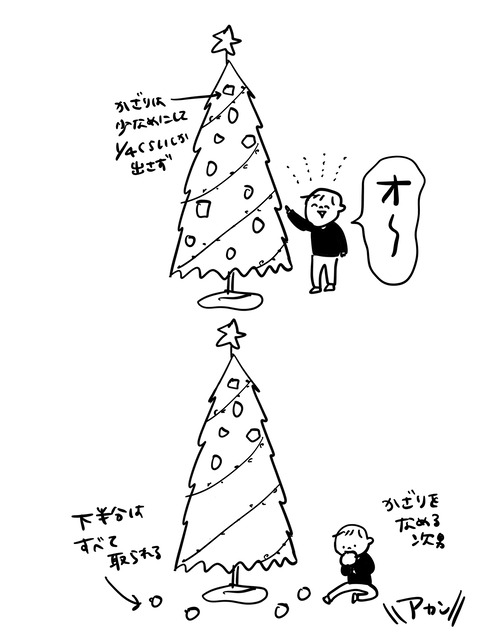 かざりは
少なめにして
1/4くらいしか
出さず
オ〜
下半分は
すべて
取られる
かざりを
なめる
次男
アカン